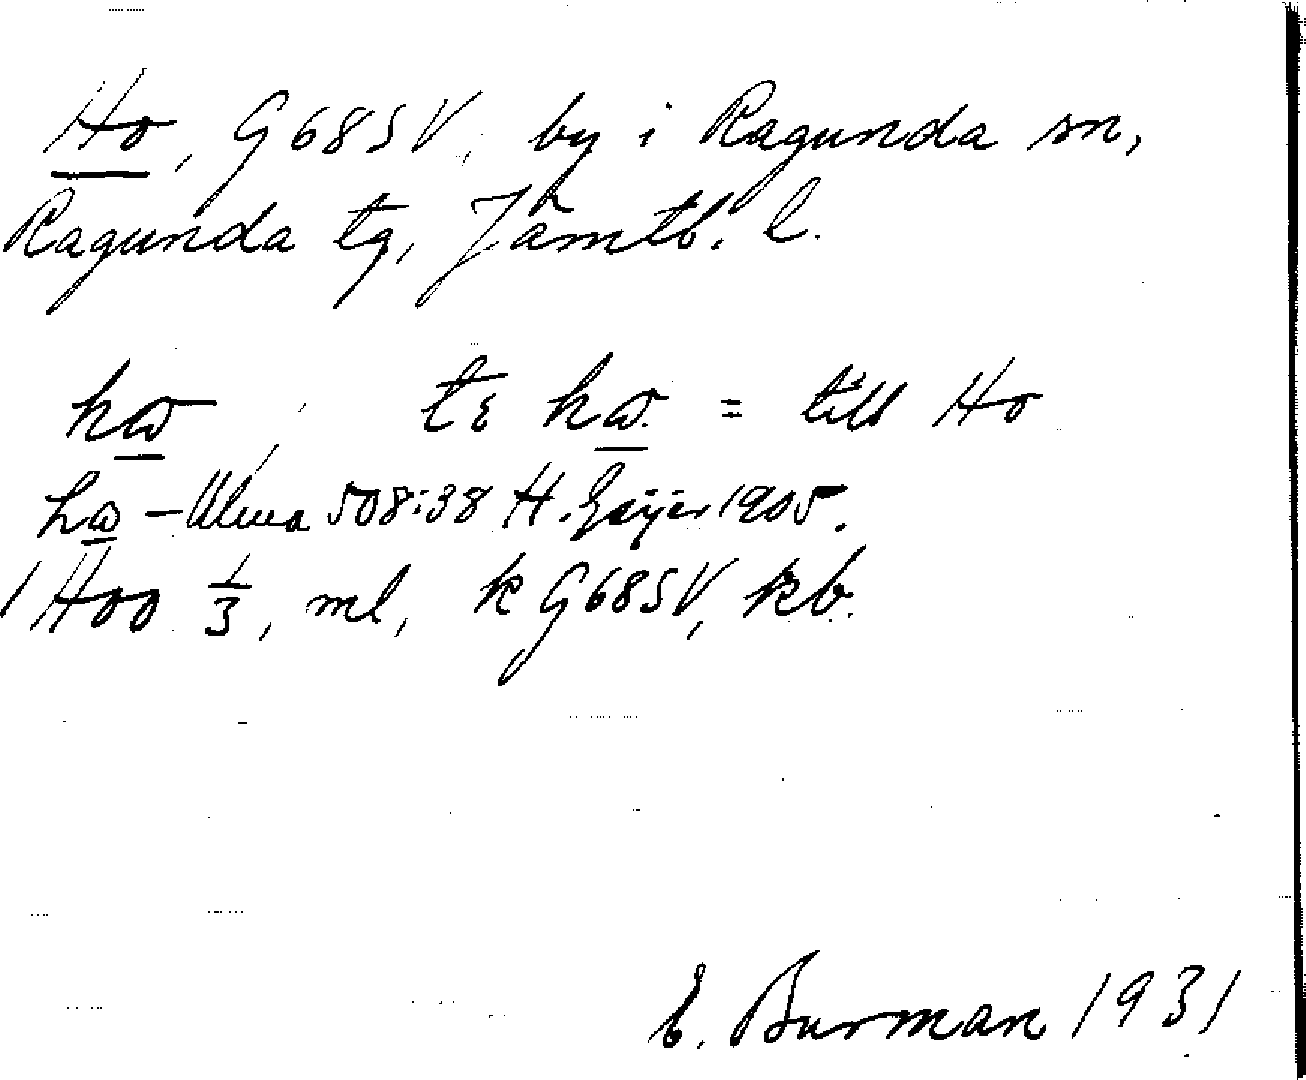 Ho, G68SV, by i Ragunda sn,
Ragunda tg, Jämtl. l.
hω ; tɛ hω. = till Ho
hω – Ulma 508:38 H. Geijer 1905.
1 Hoo 1/3, ml, k G68SV, kb.
E. Burman 1931